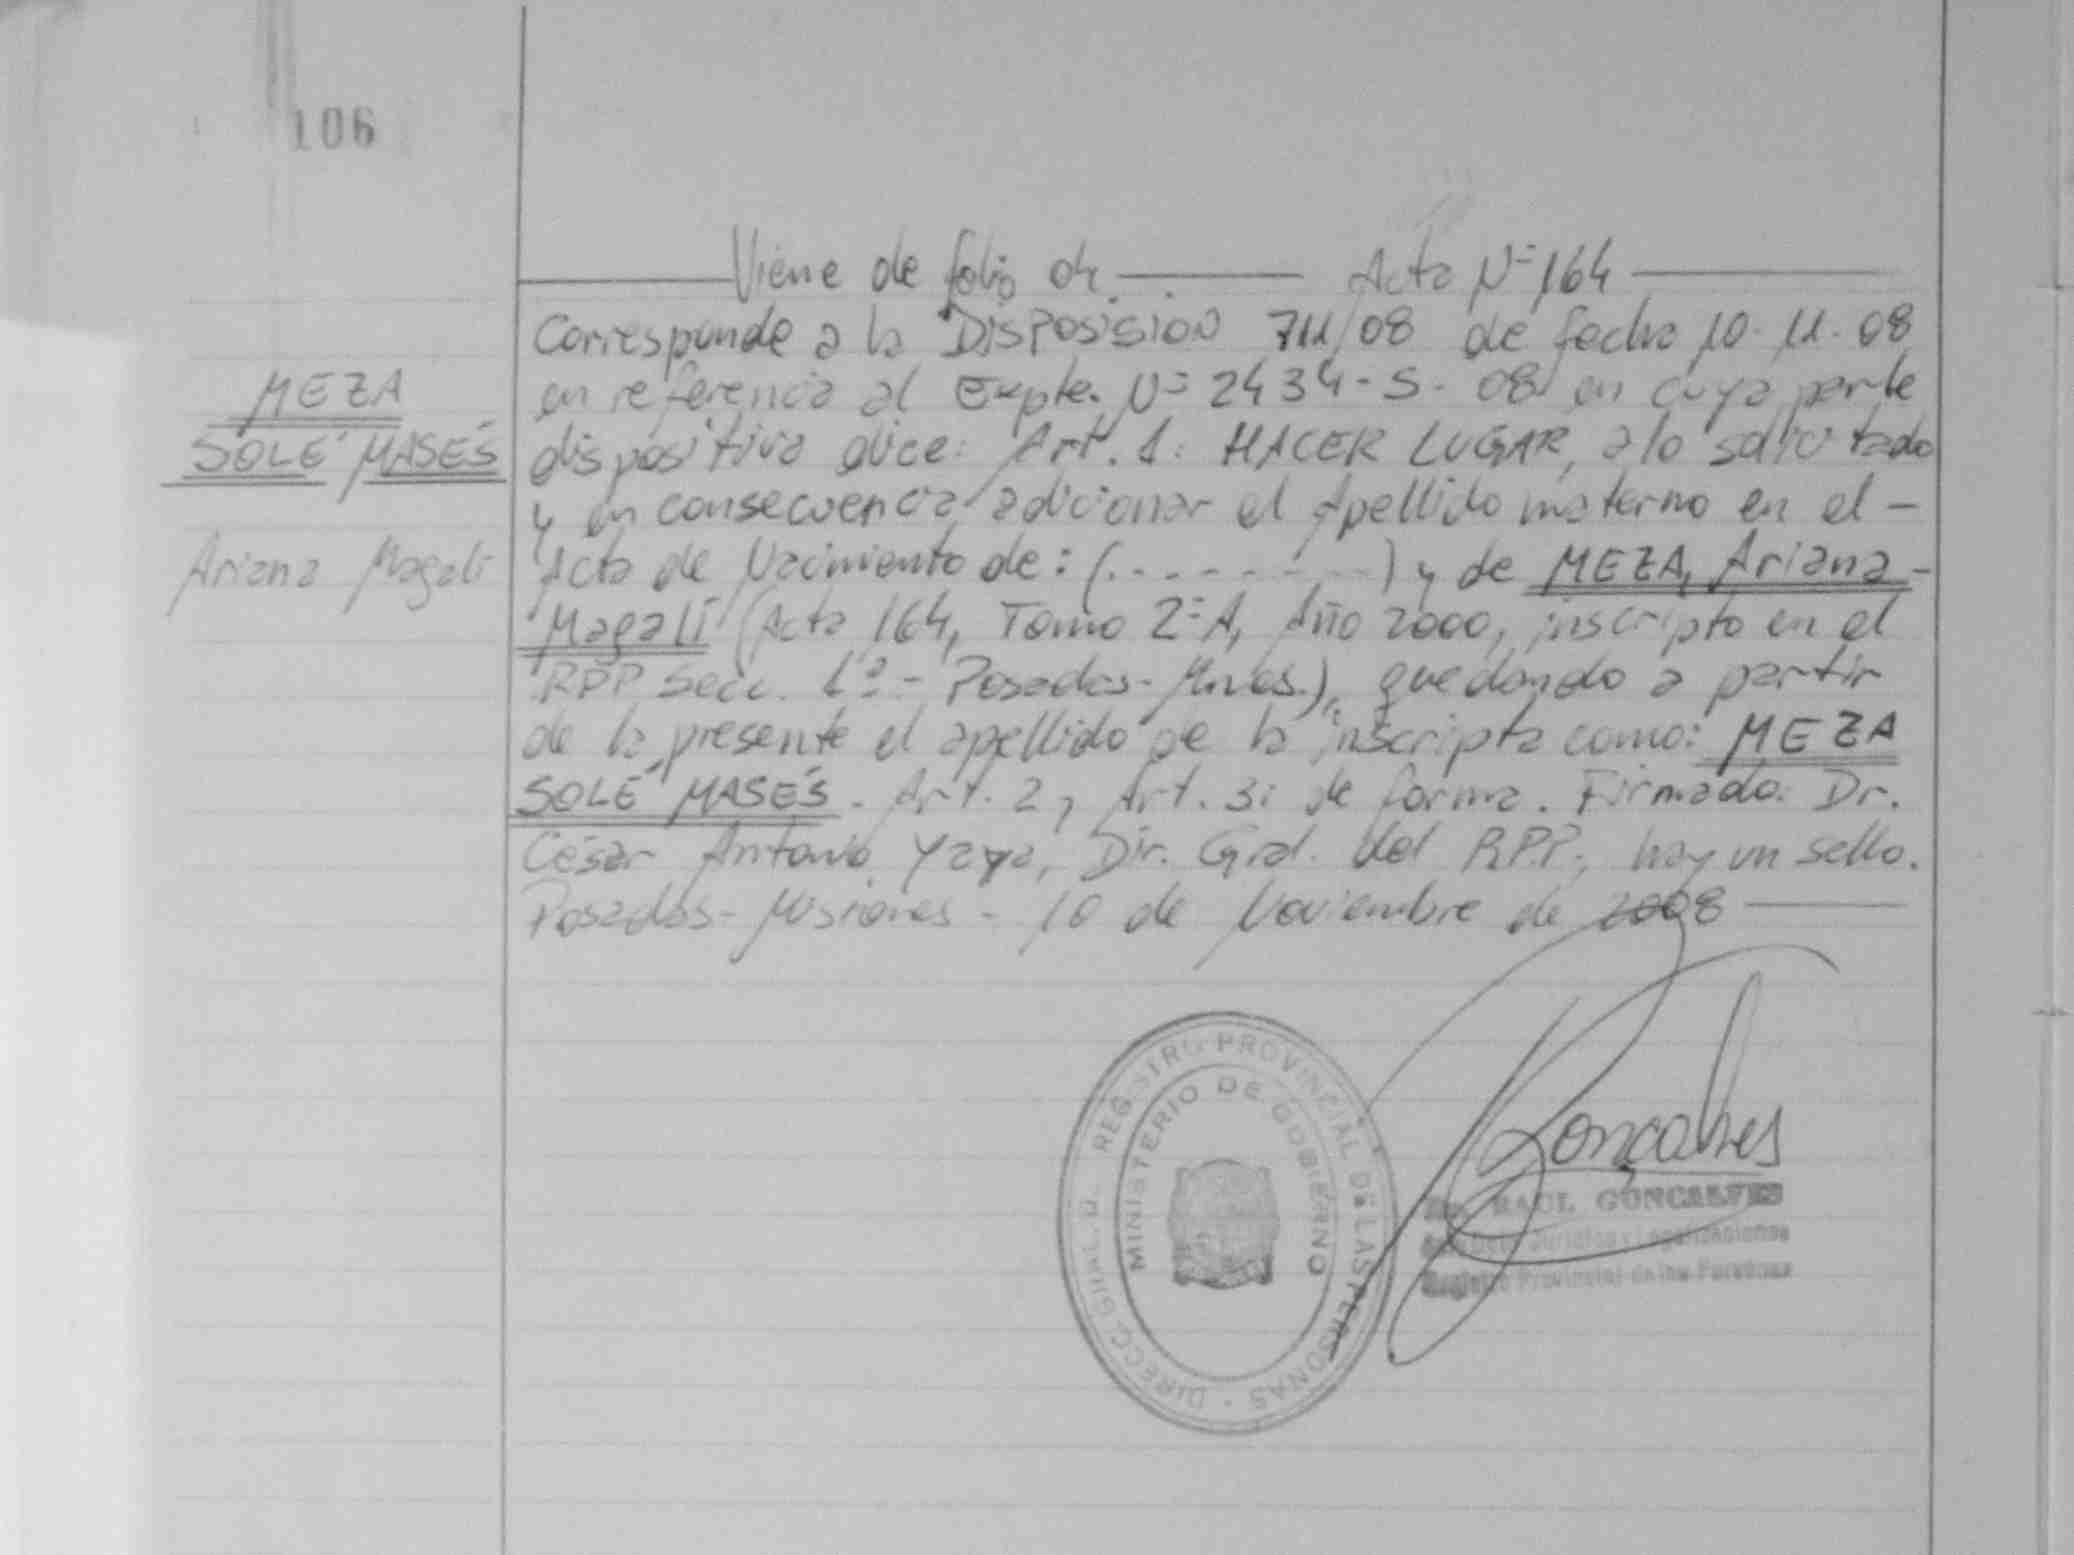 106
Viene de folio 04. Acta Nº 164
Corresponde a la DISPOSISION 711/08 de fecha 10.11.08
MEZA
en referencia al Expte. Nº 2434-S-08 en cuya parte
SOLÉ MASÉS
dispositiva dice: Art. 1: HACER LUGAR, a lo solicitado
y en consecuencia adicionar el Apellido materno en el -
Ariana Magalí
Acta de Nacimiento de: (. - - - - - - -) y de MEZA, Ariana -
Magalí (Acta 164, Tomo 2º A, Año 2000, inscripto en el
RPP Secc. 1ª - Posadas - Mnes.), quedando a partir
de la presente el apellido de la inscripta como: MEZA
SOLÉ MASÉS. Art. 2, Art. 3: de forma. Firmado: Dr.
César Antonio Yaya, Dir. Gral. del R.P.P., hay un sello.
Posadas - Misiones - 10 de Noviembre de 2008
DIRECC. GRAL. D. REGISTRO PROVINCIAL DE LAS PERSONAS
MINISTERIO DE GOBIERNO
Gonçalves
RAUL GONCALVES
Registro Provincial de las Personas